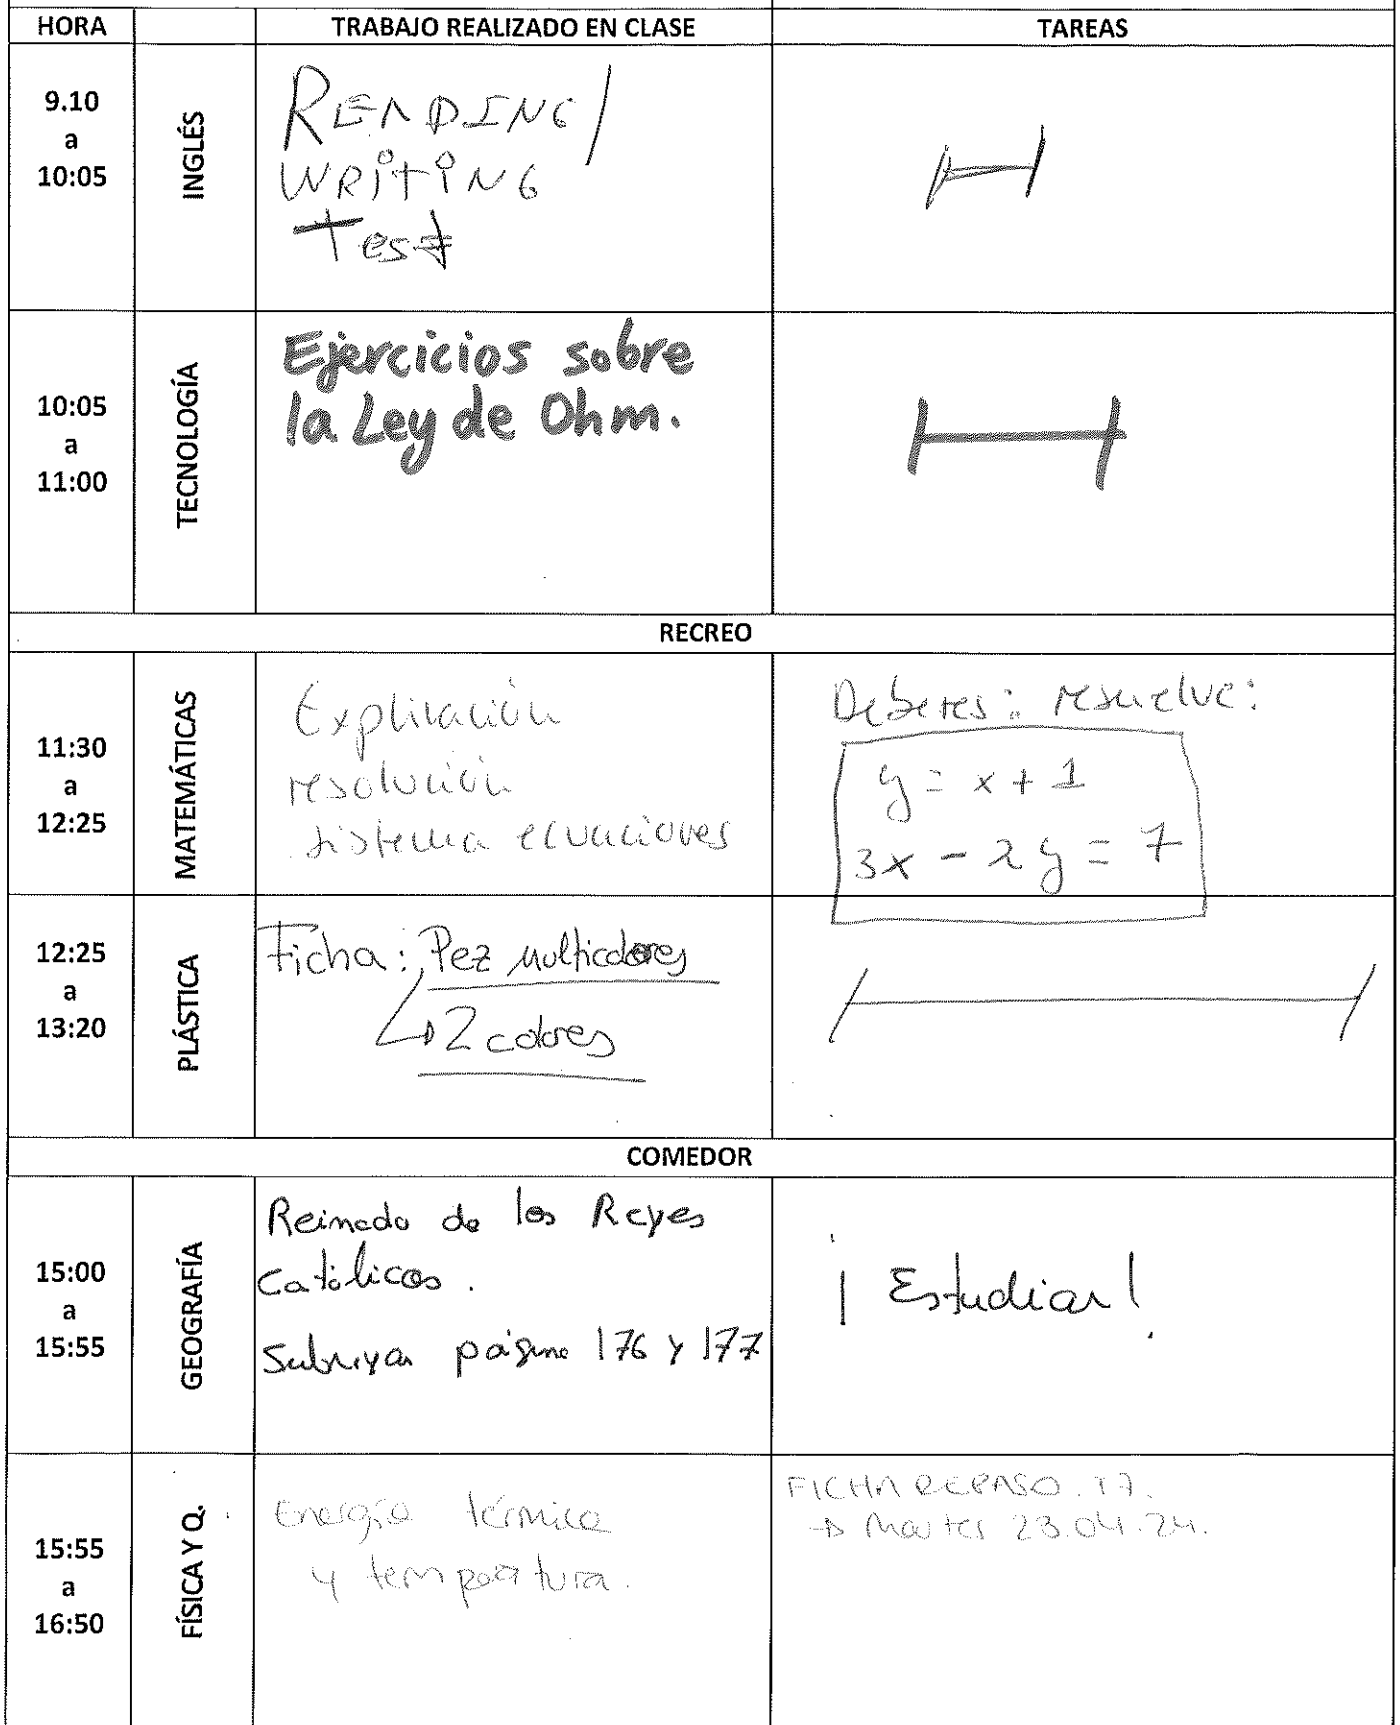 HORA TRABAJO REALIZADO EN CLASE TAREAS
9.10
a
10:05
INGLÉS
READING/
WRITING
Test
10:05
a
11:00
TECNOLOGÍA
Ejercicios sobre
la Ley de Ohm.
RECREO
11:30
a
12:25
MATEMÁTICAS
Explicación
resolución
sistema ecuaciones
Deberes: resuelve:
y = x + 1
3x - 2y = 7
12:25
a
13:20
PLÁSTICA
Ficha: Pez multicolores
↳ 2 colores
COMEDOR
15:00
a
15:55
GEOGRAFÍA
Reinado de los Reyes
Católicos.
página 176 y 177
¡Estudiar!
15:55
a
16:50
FÍSICA Y Q.
Energía térmica
y temperatura.
FICHA REPASO. T7.
→ Martes 23.04.24.